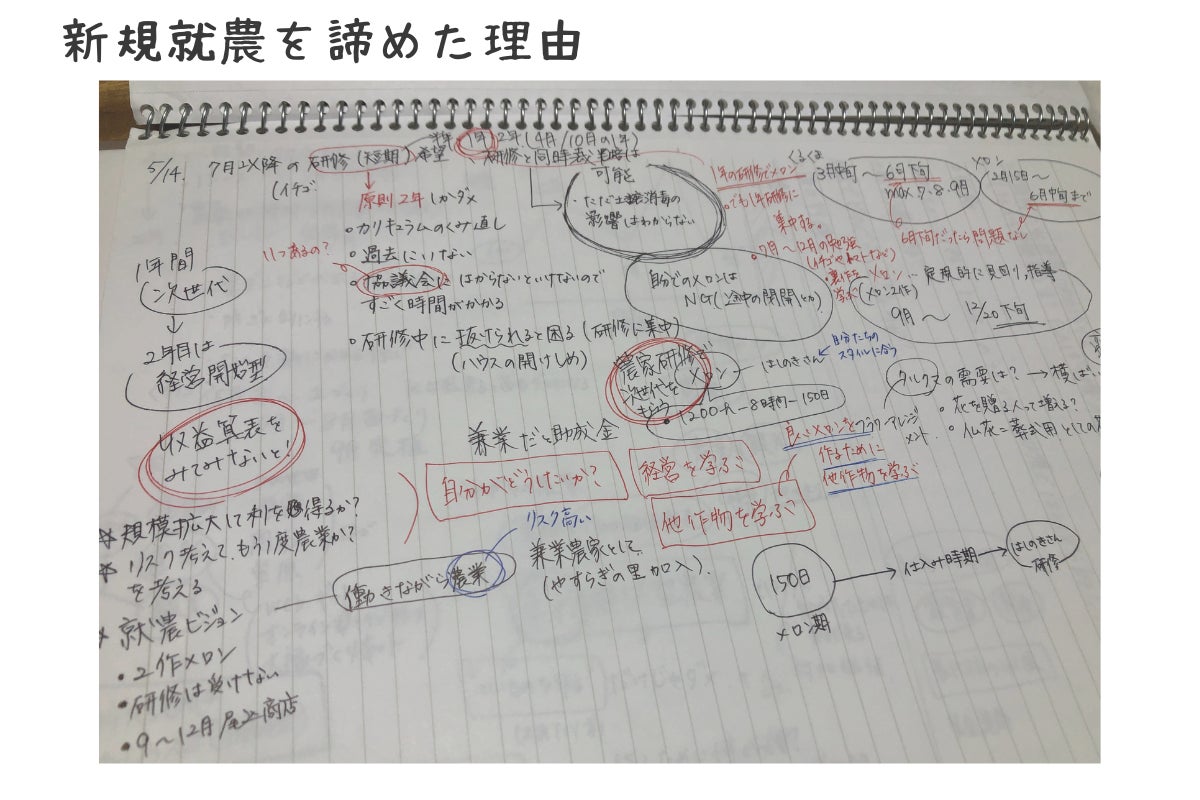 新規就農を諦めた理由
5/14. 7月以降の研修(短期)希望
(イチゴ
半年
1年 2年(4月/10月の1年)
研修と同時栽培は
可能
・ただ土壌消毒の
影響はわからない
原則2年しかダメ
・カリキュラムのくみ直し
・過去にいない
・協議会に はからないといけないので
すごく時間がかかる
・研修中に抜けられると困る(研修に集中)
(ハウスの開けしめ)
いつあるの?
1年間
次世代
↓
2年目は
経営開始型
収益算表を
みてみないと!
1年の研修でメロン
・でも1年研修に
集中する。
・7月~12月の勉強
3月中旬~6月下旬
max 7・8・9月
メロン
2月15日~
6月中旬まで
6月下旬だったら問題なし
(メロン2作)
定期的に見回り、指導
9月~12/20下旬
自分でのメロンは
NG(途中の開閉とか)
農家研修で
次世代を
もらう
メロン
はしのきさん
自分たちの
スタイルに合う
・1200h-8時間-150日
兼業だと助成金
自分がどうしたいか?
経営を学ぶ
他作物を学ぶ
良いメロンを
作るために
他作物を学ぶ
フラワーアレンジ
メント
の需要は?→横ばい
・花を贈る人って増える?
・仏花=葬式用としての
*規模拡大して利を得るか?
*リスク考えて、もう1度農業か?
を考える
*就農ビジョン
・2作メロン
・研修は受けない
・9~12月尾上商店
働きながら農業
リスク高い
兼業農家として、
(やすらぎの里加入).
150日
メロン期
→仕込み時期→
はしのきさん
研修